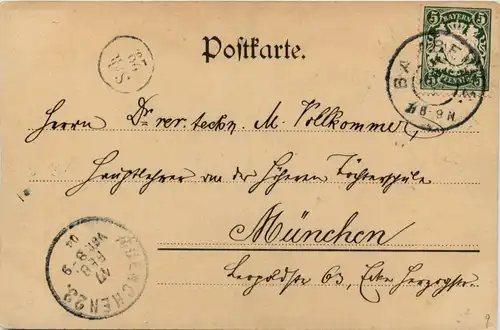 Postkarte.
5 BAYERN 5
PFENNIG
BA
7/8-9 N.
Herrn Dr rer. techn. M. Vollkommer,
Hauptlehrer an der Höheren Töchterschule
München
Leopoldstr 63, Ecke Herzogstr.
MUENCHEN 23.
17
FEB
VM. 8-9
04